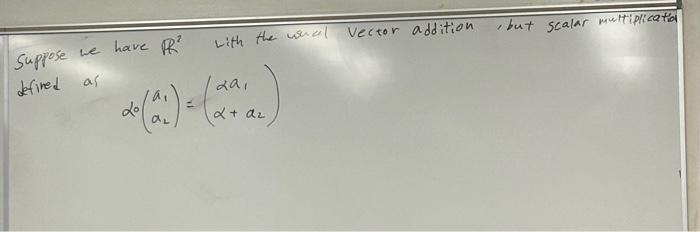 Suppose we have ℝ² with the usual vector addition, but scalar multiplicatio
defined as
α∘(a₁ a₂) = (αa₁ α + a₂)